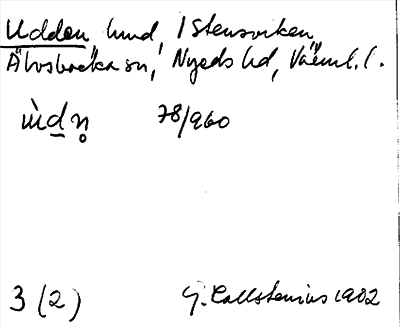 Udden lund, i Stensviken,
Älvsbacka sn, Nyeds hd, Värml. l.
ùdn 78/960
3 (2) G. Kallstenius 1902